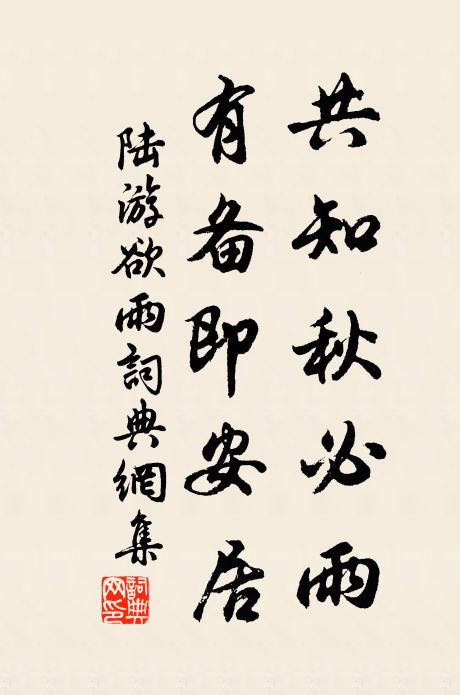 共知秋必雨
有备即安居
陆游欲雨詞典網集
詞典
网印